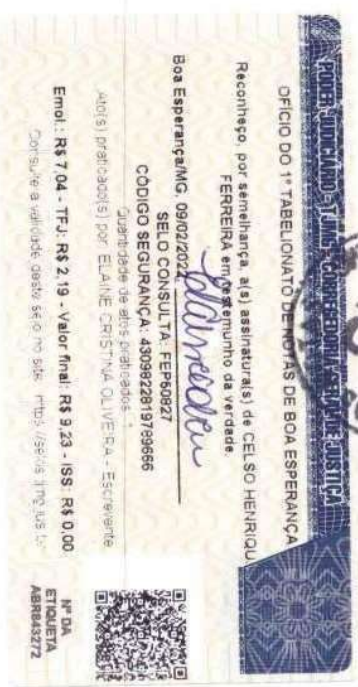 PODER JUDICIÁRIO - TJMG - CORREGEDORIA GERAL DE JUSTIÇA
OFÍCIO DO 1º TABELIONATO DE NOTAS DE BOA ESPERANÇA
Reconheço, por semelhança, a(s) assinatura(s) de CELSO HENRIQU
FERREIRA em testemunho da verdade.
Boa Esperança/MG, 09/02/2022
SELO CONSULTA: FEP60827
CÓDIGO SEGURANÇA: 4309822819789666
Quantidade de atos praticados: 1
Ato(s) praticado(s) por: ELAINE CRISTINA OLIVEIRA - Escrevente
Emol.: R$ 7,04 - TFJ: R$ 2,19 - Valor final: R$ 9,23 - ISS: R$ 0,00
Consulte a validade deste selo no site:
Nº DA
ETIQUETA
ABR843272